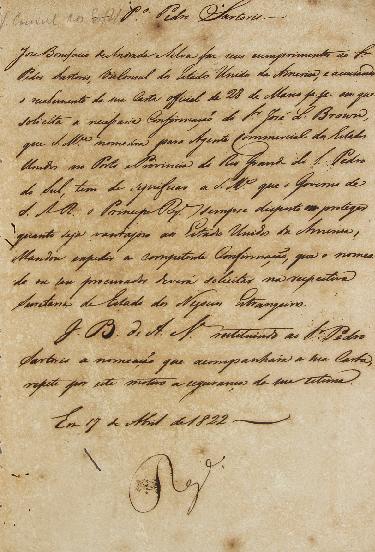 Pª Pedro Sartoris.
José Bonifacio de Andrada e Silva faz seus cumprimentos ao Sr.
Pedro Sartoris, Viceconsul dos Estados Unidos da America, e accusando
o recebimento da sua Carta official de 28 de Março pp. em que
solicita a necessaria Confirmação do Sr. José L. Brown,
que S. Mce. nomeára para Agente Commercial dos Estados
Unidos no Porto e Provincia do Rio Grande de S. Pedro
do Sul, tem de significar a S. Mce. que o Governo de
S. A. R. o Principe Reg. sempre disposto a proteger
quanto seja vantajoso aos Estados Unidos da America,
Mandou expedir a competente Confirmação, que o nomea-
do ou seu procurador deverá solicitar na respectiva
Secretaria de Estado dos Negocios Estrangeiros.
J. B. d. A. S. restituindo ao Sr. Pedro
Sartoris a nomeação que acompanhára a sua Carta,
repete por este motivo a segurança de sua estima.
Em 17 de Abril de 1822
Regdo.